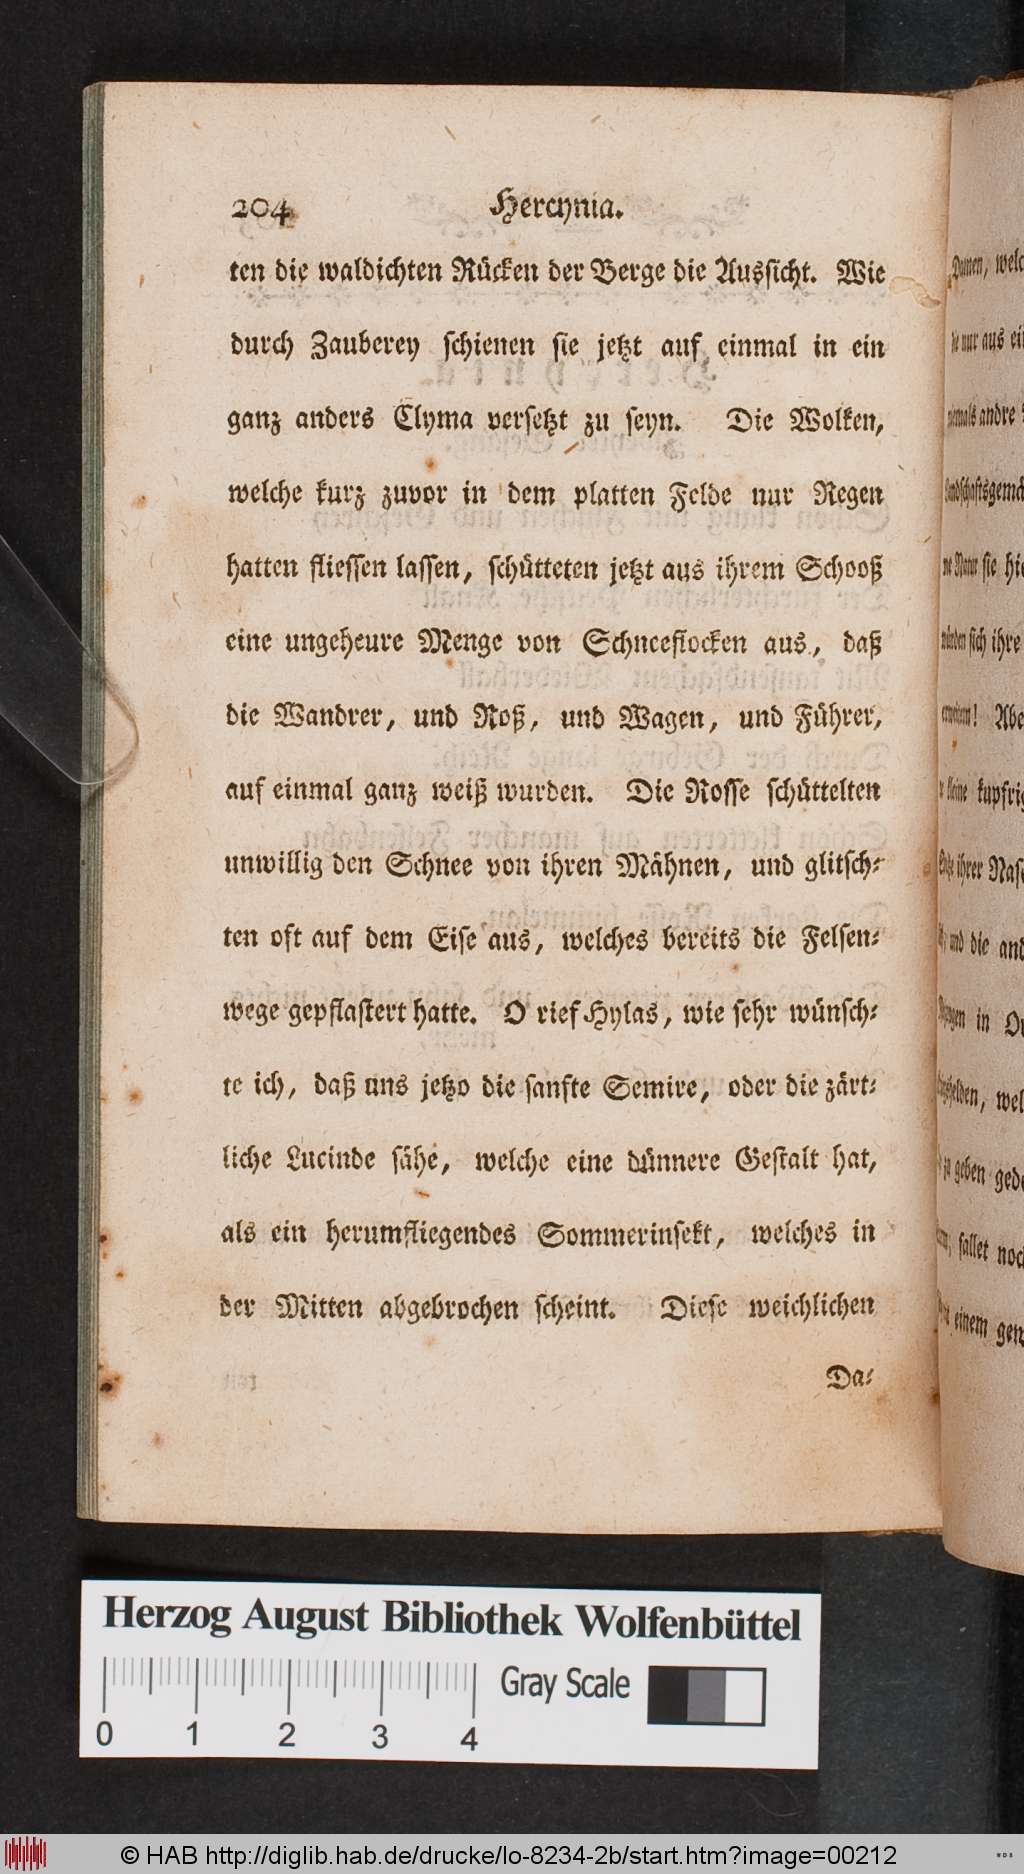 204 Hercynia.
ten die waldichten Rücken der Berge die Aussicht. Wie
durch Zauberey schienen sie jetzt auf einmal in ein
ganz anders Clyma versetzt zu seyn. Die Wolken,
welche kurz zuvor in dem platten Felde nur Regen
hatten fliessen lassen, schütteten jetzt aus ihrem Schooß
eine ungeheure Menge von Schneeflocken aus, daß
die Wandrer, und Roß, und Wagen, und Führer,
auf einmal ganz weiß wurden. Die Rosse schüttelten
unwillig den Schnee von ihren Mähnen, und glitsch-
ten oft auf dem Eise aus, welches bereits die Felsen-
wege gepflastert hatte. O rief Hylas, wie sehr wünsch-
te ich, daß uns jetzo die sanfte Semire, oder die zärt-
liche Lucinde sähe, welche eine dünnere Gestalt hat,
als ein herumfliegendes Sommerinsekt, welches in
der Mitten abgebrochen scheint. Diese weichlichen
Da-
Herzog August Bibliothek Wolfenbüttel
Gray Scale
0 1 2 3 4
© HAB http://diglib.hab.de/drucke/lo-8234-2b/start.htm?image=00212